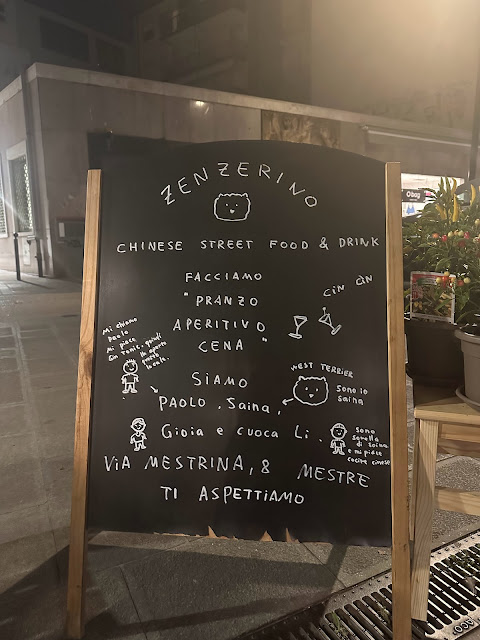 ZENZERINO
CHINESE STREET FOOD & DRINK
FACCIAMO
" PRANZO
APERITIVO
CENA "
CIN CIN
Mi chiamo
Paolo
Mi piace
Gin Tonic, quindi
ho aperto
questo
locale.
SIAMO
PAOLO, Saina,
WEST TERRIER
sono io
saina
Gioia e cuoca Li.
sono
sorella
di saina
e mi piace
cucina cinese
VIA MESTRINA, 8 MESTRE
TI ASPETTIAMO
Obag